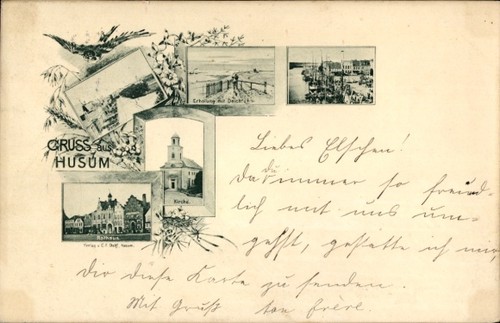 GRUSS aus
HUSUM
Erholung auf
Kirche.
Rathaus.
Verlag v. C.F.
Husum.
Liebes Elschen!
Da du immer so freund-
lich mit uns um-
gehst, gestatte ich mir,
Dir diese Karte zu senden.
Mit Gruß ton frère.